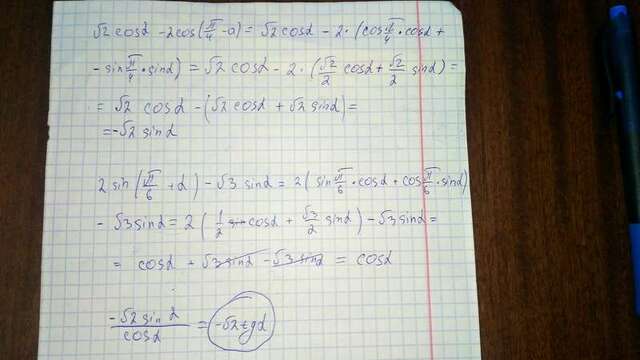 √2 cosα - 2cos(π/4 - α) = √2 cosα - 2·(cos π/4 · cosα +
- sin π/4 · sinα) = √2 cosα - 2·(√2/2 cosα + √2/2 sinα) =
= √2 cosα - (√2 cosα + √2 sinα) =
= -√2 sinα
2 sin(π/6 + α) - √3 sinα = 2(sin π/6 · cosα + cos π/6 · sinα)
- √3 sinα = 2(1/2 cosα + √3/2 sinα) - √3 sinα =
= cosα + √3 sinα - √3 sinα = cosα
-√2 sinα / cosα = -√2 tgα